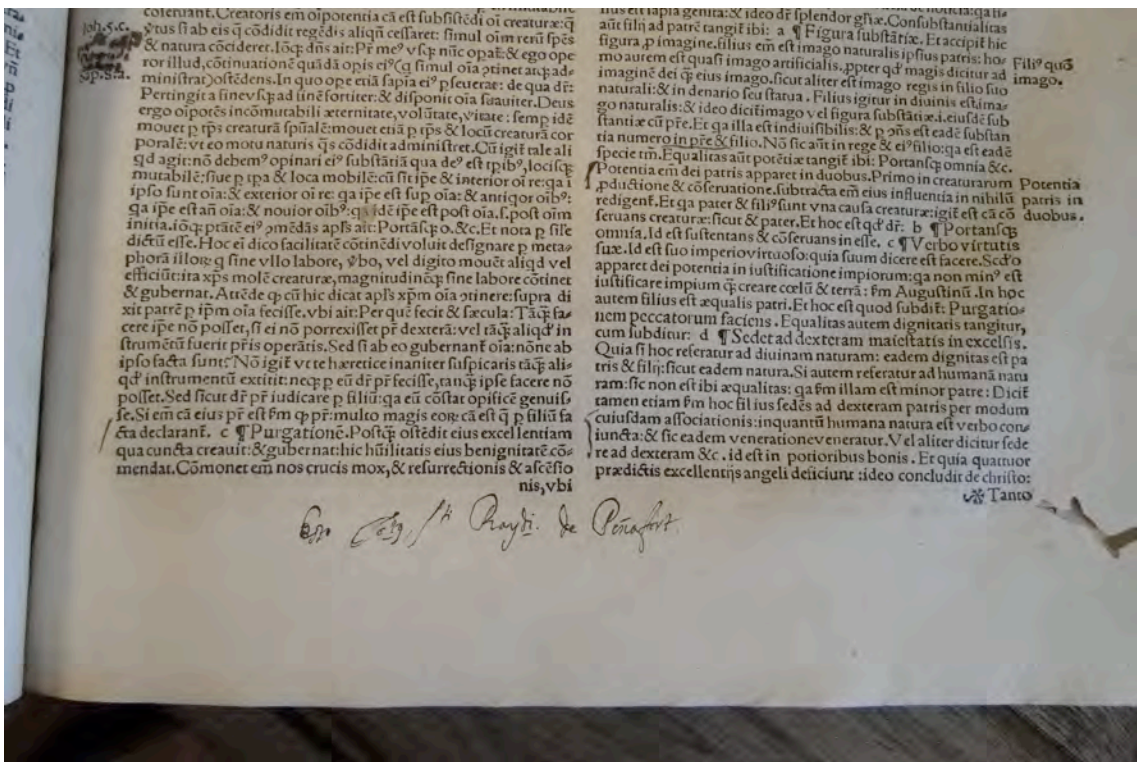 ꝟtus si ab eis q̄ cōdidit regēdis aliqñ cessaret: simul oim rerū spēs
& natura cōcideret. Iōq; dñs ait: Pr̄ meꝰ vsq; nūc opat̄: & ego ope
ror illud, cōtinuationē quādā opis eiꝰ (q̄ simul oīa ꝯtinet atq; ad-
ministrat) ostēdens. In quo ope etiā sapīa eiꝰ pseuerat: de qua dr̄:
Pertingit a fine vsq; ad finē fortiter: & disponit oīa suauiter. Deus
ergo oipotēs incōmutabili æternitate, volūtate, ṽitate: semp idē
mouet p tps creaturā spūalē: mouet etiā p tps & locū creaturā cor
poralē: vt eo motu naturis q̄s cōdidit administret. Cū igit̄ tale ali
qd agit: nō debemꝰ opinari eiꝰ substātiā qua deꝰ est tpibꝰ, locisq;
mutabilē: siue p tpa & loca mobilē: cū sit ipe & interior oī re: qa ī
ipso sunt oīa: & exterior oī re: qa ipe est sup oīa: & antiqor oībꝰ:
qa ipe est añ oīa: & nouior oībꝰ: qa idē ipe est post oīa. s. post oim
initia. iōq; p̄tātē eiꝰ ꝯmēdās apls ait: Portāsq; o. &c. Et nota p̱ sile
dictū esse. Hoc eī dico facilitatē cōtinēdi voluit designare p meta-
phorā illoꝝ: q sine vllo labore, ꝟbo, vel digito mouēt aliqd vel
efficiūt: ita xps molē creaturæ, magnitudinēq; sine labore cōtinet
& gubernat. Attēde qꝫ cū hic dicat apls xpm oīa ꝯtinere: supra di
xit patrē p ipm oīa fecisse. vbi ait: Per quē fecit & sæcula: Tāq; fa-
cere ipe nō posset, si ei nō porrexisset pr̄ dexterā: vel tāq; aliqdꝰ in
strumētū fuerit pr̄is operātis. Sed si ab eo gubernant̄ oīa: nōne ab
ipso facta sunt? Nō igit̄ vt te hæretice inaniter suspicaris tāq; ali-
qdꝰ instrumētū extitit: neq; p eū dr̄ pr̄ fecisse, tanq; ipse facere nō
posset. Sed sicut dr̄ pr̄ iudicare p filiū: qa eū cōstat opificē genuis
se. Si em̄ cā eius pr̄ est ẜm qꝫ pr̄: multo magis eoꝝ cā est q̄ p filiū fa
cta declarant̄. c ¶ Purgationē. Postq; ostēdit eius excellentiam
qua cuncta creauit: & gubernat: hic hūilitatis eius benignitatē cō-
mendat. Cōmonet em̄ nos crucis mox, & resurrectionis & ascēsio
nis, vbi
aūt filij ad patrē tangit̄ ibi: a ¶ Figura substātiæ. Et accipit̄ hic
figura, p imagine. filius em̄ est imago naturalis ipsius patris: ho-
mo autem est quasi imago artificialis. ꝓpter qdꝰ magis dicitur ad
imaginē dei q̄ eius imago. sicut aliter est imago regis in filio suo
naturali: & in denario seu statua. Filius igitur in diuinis est ima-
go naturalis: & ideo dicit̄ imago vel figura substātiæ. i. eiusdē sub
stantiæ cū pr̄e. Et qa illa est indiuisibilis: & p ꝯñs est eadē substan
tia numero in pr̄e & filio. Nō sic aūt in rege & eiꝰ filio: qa est eadē
specie tm̄. Equalitas aūt potētiæ tangit̄ ibi: Portansq; omnia &c.
Potentia em̄ dei patris apparet in duobus. Primo in creaturarum
ꝓductione & cōseruatione. subtracta em̄ eius influentia in nihilū
redigent̄. Et qa pater & filiꝰ sunt vna causa creaturæ: igit̄ est cā cō
seruans creaturæ: sicut & pater. Et hoc est qdꝰ dr̄: b ¶ Portansq;
omnia. Id est sustentans & cōseruans in esse. c ¶ Verbo virtutis
suæ. Id est suo imperio virtuoso: quia suum dicere est facere. Scdo
apparet dei potentia in iustificatione impiorum: qa non minꝰ est
iustificare impium q̄ creare cœlū & terrā: ẜm Augustinū. In hoc
autem filius est æqualis patri. Et hoc est quod subdit̄: Purgatio-
nem peccatorum faciens. Equalitas autem dignitatis tangitur,
cum subditur: d ¶ Sedet ad dexteram maiestatis in excelsis.
Quia si hoc referatur ad diuinam naturam: eadem dignitas est pa
tris & filij: sicut eadem natura. Si autem referatur ad humanā natu
ram: sic non est ibi æqualitas: qa ẜm illam est minor patre: Dicit̄
tamen etiam ẜm hoc filius sedēs ad dexteram patris per modum
cuiusdam associationis: inquantū humana natura est verbo con-
iuncta: & sic eadem veneratione veneratur. Vel aliter dicitur sede
re ad dexteram &c. id est in potioribus bonis. Et quia quattuor
prædictis excellentijs angeli deficiunt: ideo concludit de christo:
Tanto
Joh.5.c.
Sap.8.a.
Filiꝰ quō
imago.
Potentia
patris in
duobus.
Raydi. de Peñafort.